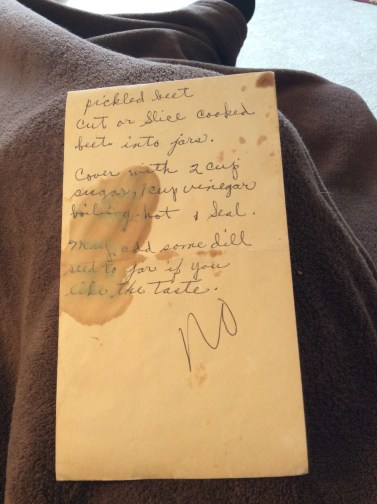 pickled beet
cut or slice cooked
beets into jars.
Cover with 2 cup
sugar, 1 cup vinegar
boiling hot & seal.
May add some dill
seed to jar if you
like the taste.
NO